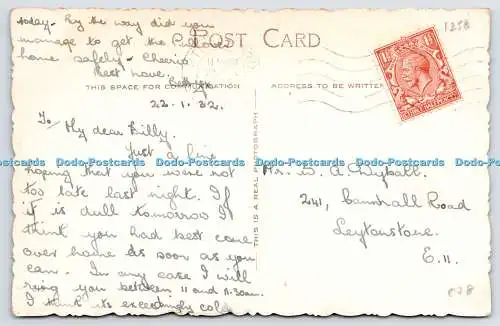 today - By the way did you
manage to get the
home safely - Cheerio
Best love.
POST CARD
THIS SPACE FOR COMMUNICATION
ADDRESS TO BE WRITTEN
1258
22.1.32.
My dear Billy,
Just a line
hoping that you were not
too late last night. If
it is dull tomorrow I
think you had best come
over home as soon as you
can. In any case I will
ring you between 11 and 11.30am.
I think it's exceedingly cold
THIS IS A REAL PHOTOGRAPH
Mr. W. A.
241, Cannhall Road
Leytonstone.
E.11.
c78
Dodo-Postcards Dodo-Postcards Dodo-Postcards Dodo-Postcards Dodo-Postcards Dodo-Postcards